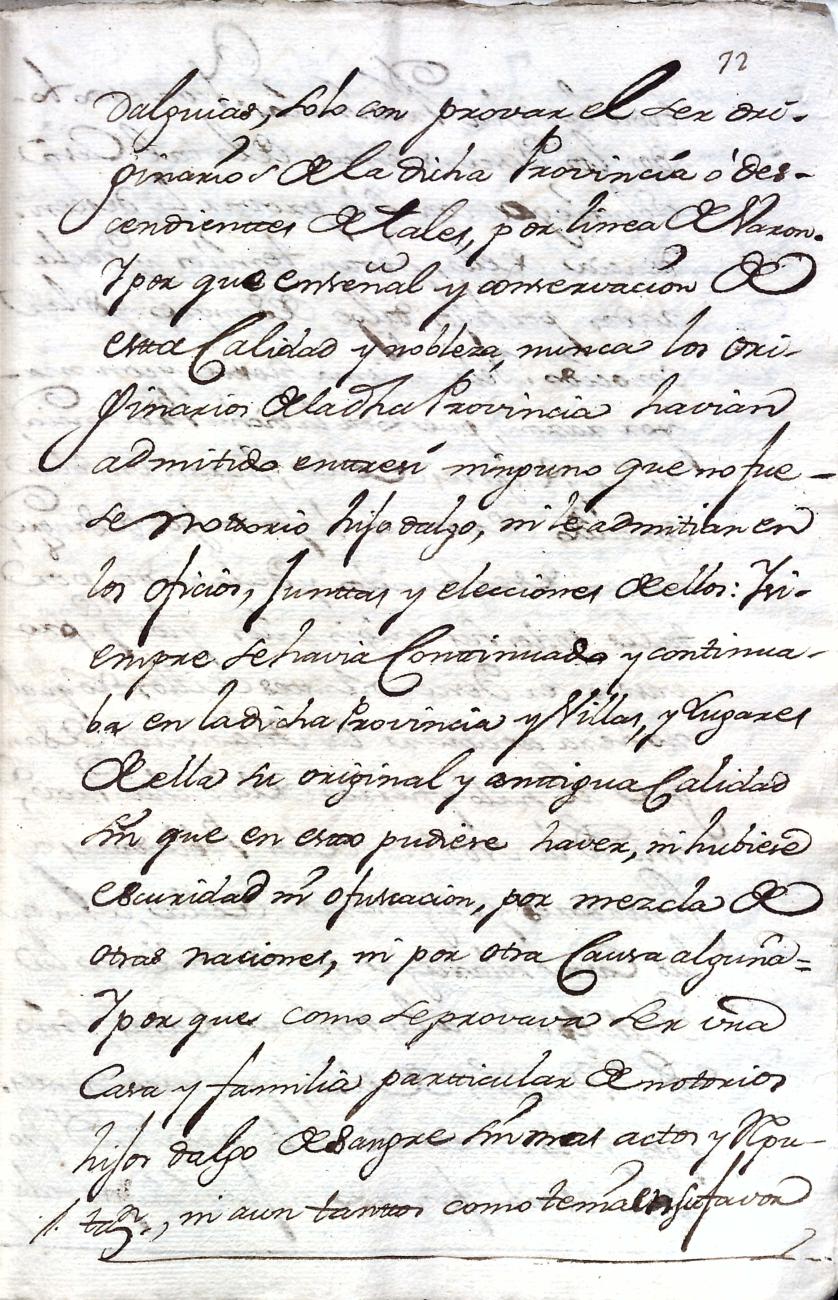 72
dalguias, solo con provar el ser ori-
ginarios de la dicha Provincia ó des-
cendientes de tales, por linea de Varon.
Y por que en señal y conservacion de
esta Calidad y nobleza, nunca los ori-
ginarios de la dha Provincia havian
admitido entre sí ninguno que no fue-
se nottorio hijo dalgo, ni le admitian en
los oficios, Junttas y elecciones de ellos: Y si-
empre se havia Continuado y continua-
ba en la dicha Provincia y Villas, y Lugares
de ella su original y anttigua Calidad
sin que en esto pudiese haver, ni hubiese
escuridad ni ofuscacion, por mezcla de
otras naciones, ni por otra Causa alguna =
Y por que como se provava ser una
Casa y familia partticular de notorios
hijos dalgo de sangre sin mas actos y Repu-
taz.n, ni aun tanttos como tenia en su favor